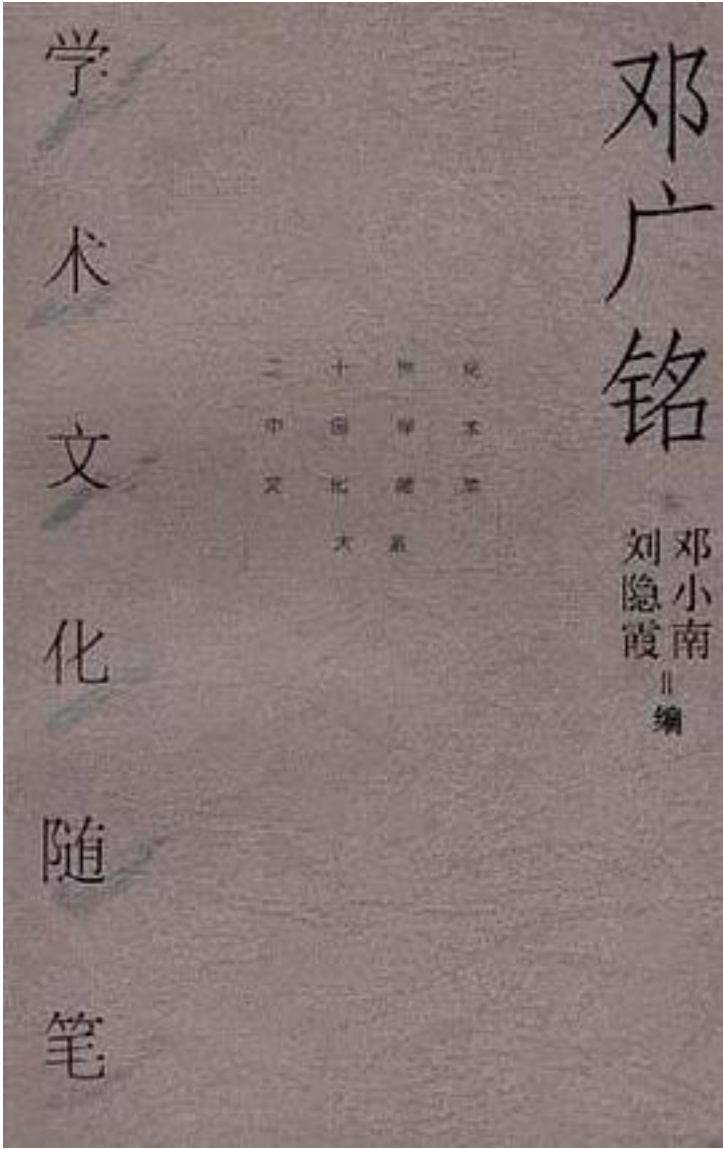 邓广铭
邓小南
刘隐霞
编
二十世纪
中国学术
文化随笔
大系
学术文化随笔